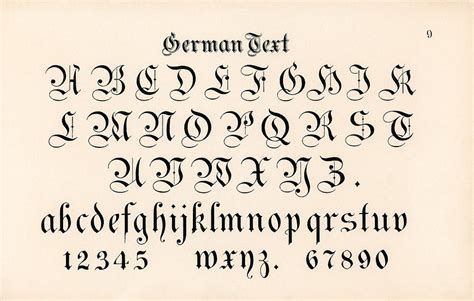 German Text
9
A B C D E F G H I K
L M N O P Q R S T
U V W X Y Z.
abcdefghijklmnopqrstuv
12345 wxyz. 67890